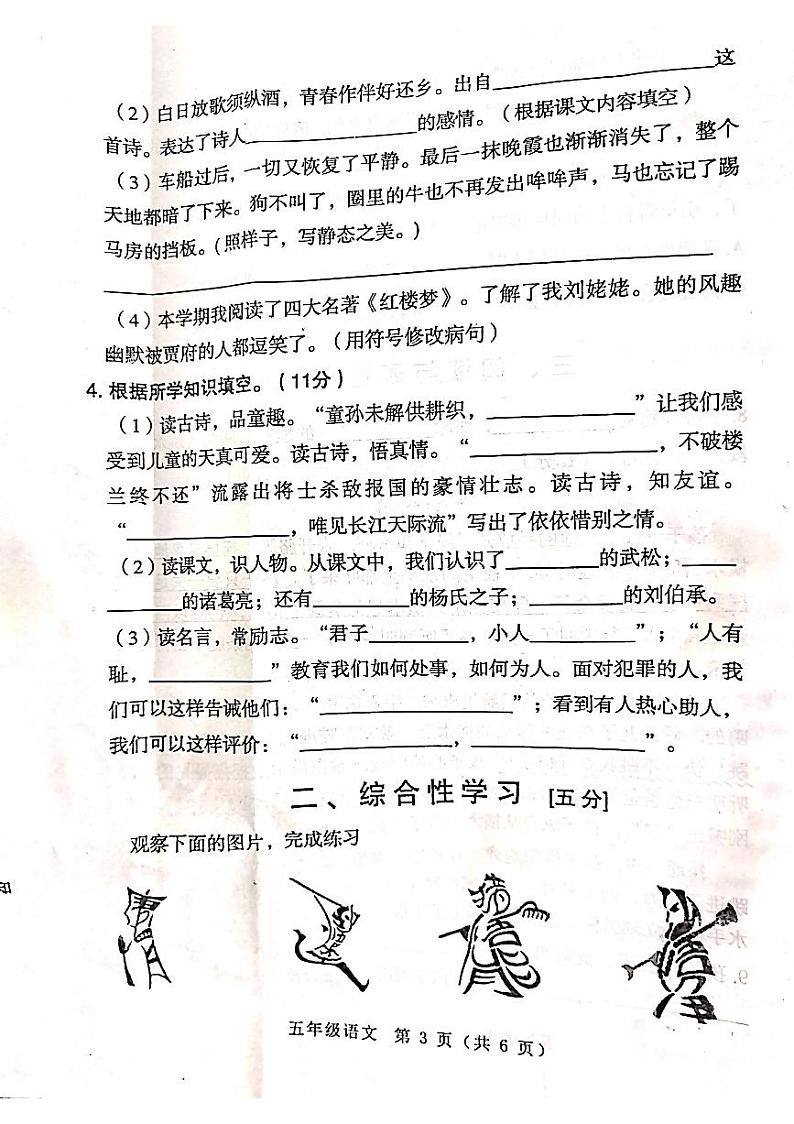 （2）白日放歌须纵酒，青春作伴好还乡。出自____________________这
首诗。表达了诗人________________的感情。（根据课文内容填空）
（3）车船过后，一切又恢复了平静。最后一抹晚霞也渐渐消失了，整个
天地都暗了下来。狗不叫了，圈里的牛也不再发出哞哞声，马也忘记了踢
马房的挡板。（照样子，写静态之美。）
____________________________________________________________
（4）本学期我阅读了四大名著《红楼梦》。了解了我刘姥姥。她的风趣
幽默被贾府的人都逗笑了。（用符号修改病句）
4. 根据所学知识填空。（11分）
（1）读古诗，品童趣。“童孙未解供耕织，______________”让我们感
受到儿童的天真可爱。读古诗，悟真情。“__________________，不破楼
兰终不还”流露出将士杀敌报国的豪情壮志。读古诗，知友谊。
“________________，唯见长江天际流”写出了依依惜别之情。
（2）读课文，识人物。从课文中，我们认识了_________的武松；_____
_______的诸葛亮；还有_________的杨氏之子；_________的刘伯承。
（3）读名言，常励志。“君子__________，小人__________”；“人有
耻，____________”教育我们如何处事，如何为人。面对犯罪的人，我
们可以这样告诫他们：“__________________”；看到有人热心助人，
我们可以这样评价：“______________，________________”。
二、综合性学习 [五分]
观察下面的图片，完成练习
五年级语文 第3页（共6页）